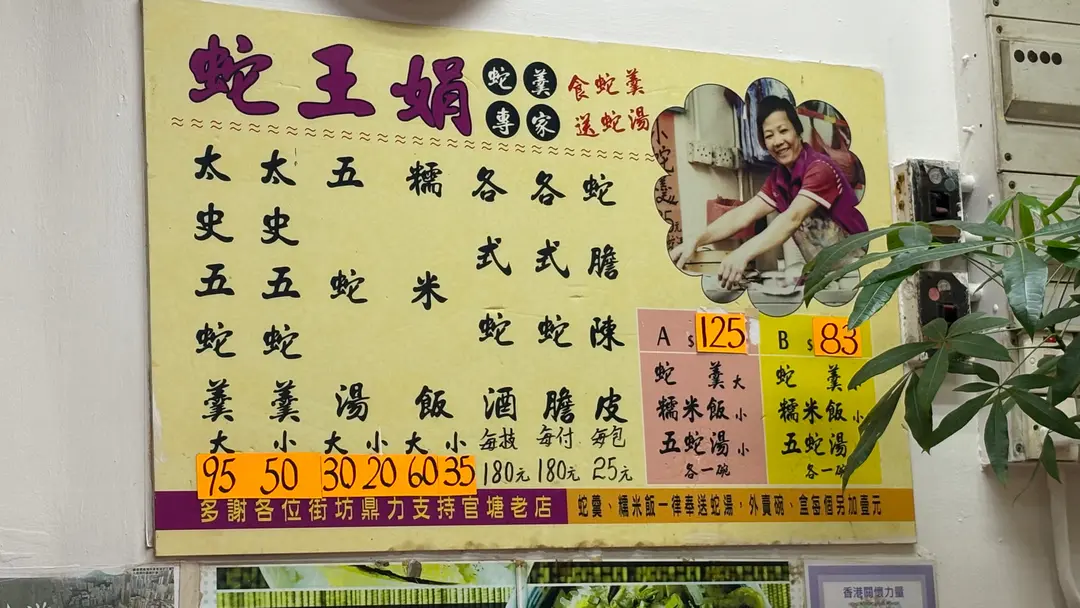 蛇王娟
蛇羹
專家
食蛇羹
送蛇湯
太史五蛇羹 大 95
太史五蛇羹 小 50
五蛇湯 大 小 30 20
糯米飯 大 小 60 35
各式蛇酒 每枝 180元
各式蛇膽 每付 180元
蛇膽陳皮 每包 25元
A $125
蛇羹大
糯米飯小
五蛇湯小
各一碗
B $83
蛇羹
糯米飯小
五蛇湯
各一碗
多謝各位街坊鼎力支持官塘老店
蛇羹、糯米飯一律奉送蛇湯，外賣碗、盒每個另加壹元
香港關懷力量